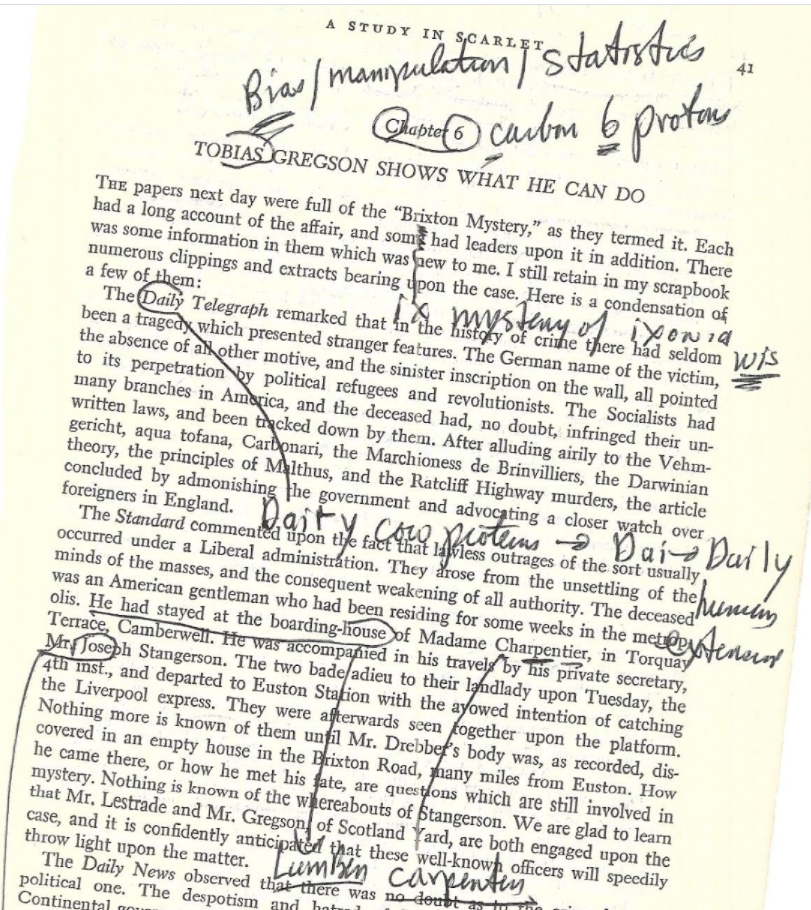 A STUDY IN SCARLET
41
Bias/manipulation/statistics
Chapter 6 carbon 6 protons
TOBIAS GREGSON SHOWS WHAT HE CAN DO
THE papers next day were full of the “Brixton Mystery,” as they termed it. Each
had a long account of the affair, and some had leaders upon it in addition. There
was some information in them which was new to me. I still retain in my scrapbook
numerous clippings and extracts bearing upon the case. Here is a condensation of
a few of them:
ix mystery of ixonia
wis
The Daily Telegraph remarked that in the history of crime there had seldom
been a tragedy which presented stranger features. The German name of the victim,
the absence of all other motive, and the sinister inscription on the wall, all pointed
to its perpetration by political refugees and revolutionists. The Socialists had
many branches in America, and the deceased had, no doubt, infringed their un-
written laws, and been tracked down by them. After alluding airily to the Vehm-
gericht, aqua tofana, Carbonari, the Marchioness de Brinvilliers, the Darwinian
theory, the principles of Malthus, and the Ratcliff Highway murders, the article
concluded by admonishing the government and advocating a closer watch over
foreigners in England.
Dairy cow proteins → Dai → Daily
human
The Standard commented upon the fact that lawless outrages of the sort usually
occurred under a Liberal administration. They arose from the unsettling of the
minds of the masses, and the consequent weakening of all authority. The deceased
was an American gentleman who had been residing for some weeks in the metrop-
olis. He had stayed at the boarding-house of Madame Charpentier, in Torquay
Terrace, Camberwell. He was accompanied in his travels by his private secretary,
Mr. Joseph Stangerson. The two bade adieu to their landlady upon Tuesday, the
4th inst., and departed to Euston Station with the avowed intention of catching
the Liverpool express. They were afterwards seen together upon the platform.
Nothing more is known of them until Mr. Drebber’s body was, as recorded, dis-
covered in an empty house in the Brixton Road, many miles from Euston. How
he came there, or how he met his fate, are questions which are still involved in
mystery. Nothing is known of the whereabouts of Stangerson. We are glad to learn
that Mr. Lestrade and Mr. Gregson, of Scotland Yard, are both engaged upon the
case, and it is confidently anticipated that these well-known officers will speedily
throw light upon the matter.
Lumber carpenter
The Daily News observed that there was no doubt as to the
political one. The despotism and
Continental